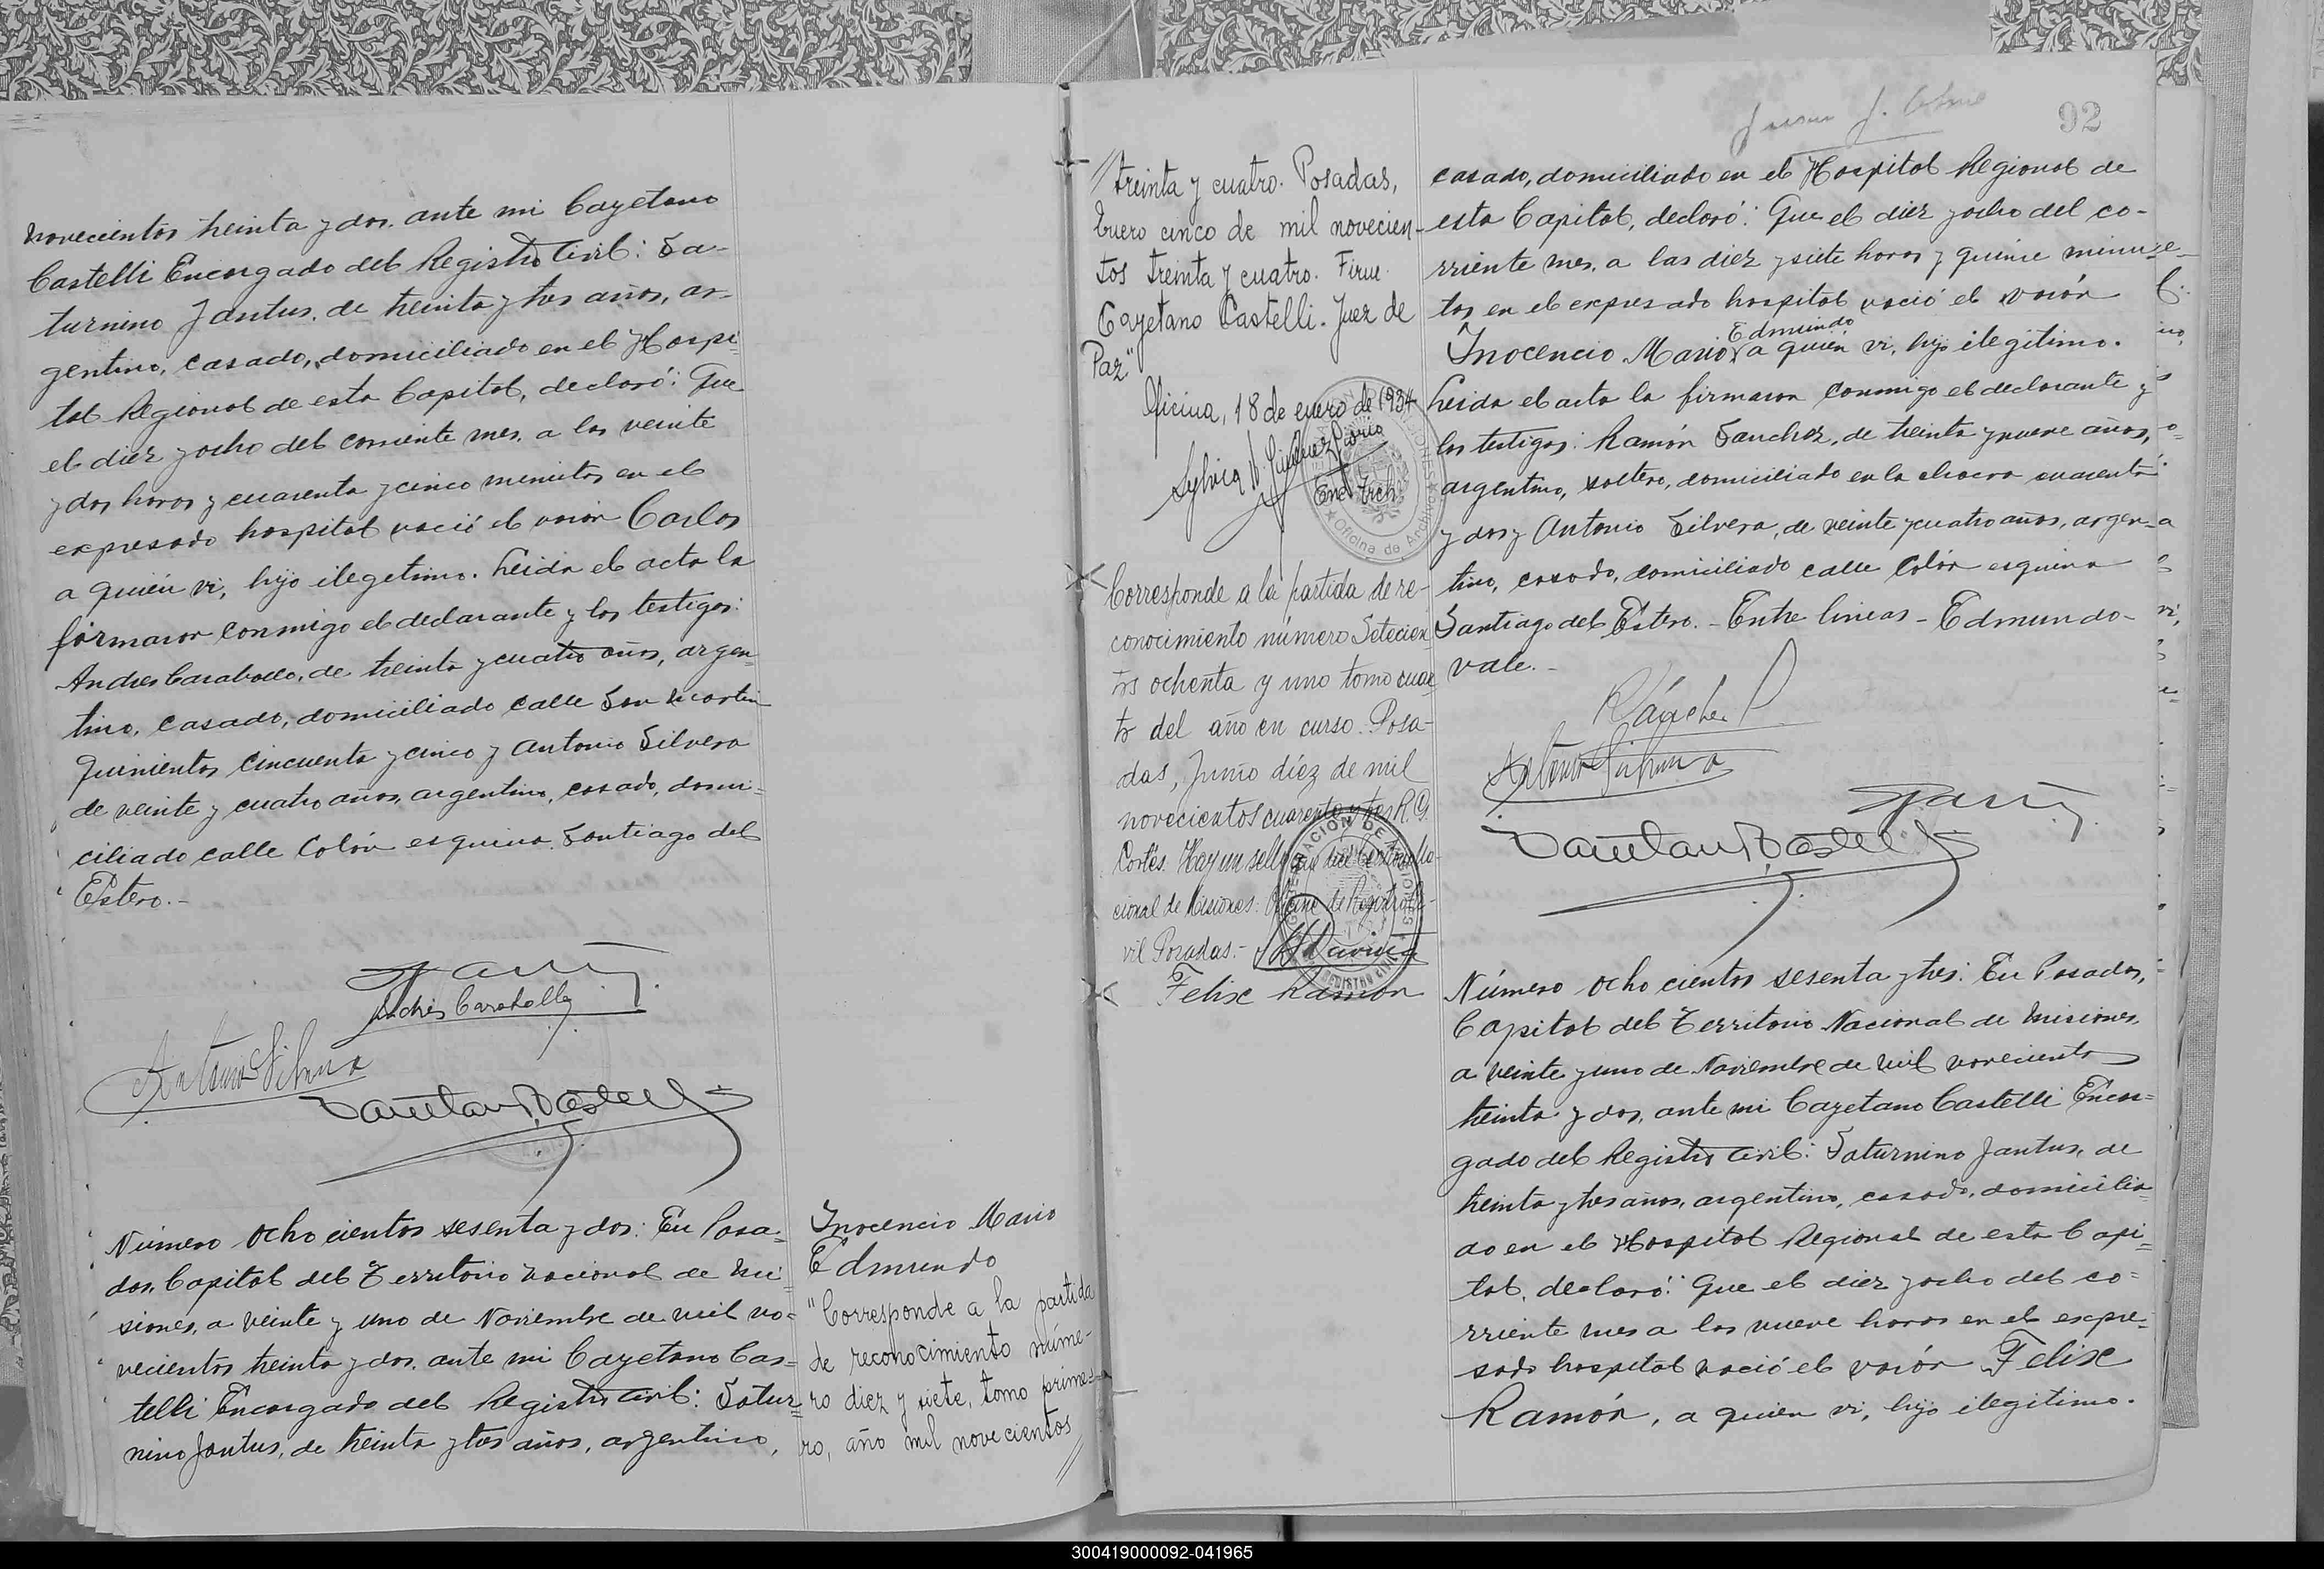 novecientos treinta y dos, ante mi Cayetano
Castelli Encargado del Registro Civil: Sa-
turnino Jantus, de treinta y tres años, ar-
gentino, casado, domiciliado en el Hospi-
tal Regional de esta Capital, declaró: Que
el diez y ocho del corriente mes, a las veinte
y dos horas y cuarenta y cinco minutos en el
expresado hospital nació el varón Carlos
a quién vi, hijo ilegetimo. Leida el acta la
firmaron conmigo el declarante y los testigos:
Andres Caraballo, de treinta y cuatro años, argen-
tino, casado, domiciliado calle San Martin
quinientos cincuenta y cinco y Antonio Silvera
de veinte y cuatro años, argentino, casado, domi=
ciliado calle Colón esquina Santiago del
Estero.-
Andrés Caraballo
Antonio Silvera
Número ocho cientos sesenta y dos: En Posa=
das, Capital del Territorio Nacional de Mi=
siones, a veinte y uno de Noviembre de mil no=
vecientos treinta y dos, ante mi Cayetano Cas=
telli Encargado del Registro Civil: Satur=
nino Jantus, de treinta y tres años, argentino,
Inocencio Mario
Edmundo
"Corresponde a la partida
de reconocimiento núme-
ro diez y siete, tomo prime-
ro, año mil novecientos
//
//treinta y cuatro. Posadas,
Enero cinco de mil novecien-
tos treinta y cuatro. Firm.
Cayetano Castelli. Juez de
Paz."
Oficina, 18 de enero de 1934
Enc. Arch.
Oficina de Archivo
Corresponde a la partida de re-
conocimiento número Setecien
tos ochenta y uno tomo cuar
to del año en curso. Posa-
das, Junio diéz de mil
novecientos cuarenta y tres R. G.
Cortés. Hay un sello que dice
cional de Misiones. Oficina de Registro Ci-
vil Posadas.-
Felixe Ramón
92
casado, domiciliado en el Hospital Regional de
esta Capital, declaró: Que el diez y ocho del co-
rriente mes, a las diez y siete horas y quince minu-
tos en el expresado hospital nació el varón
Edmundo
Inocencio Mario, a quién vi, hijo ilegitimo.
Leida el acta la firmaron conmigo el declarante y
los testigos: Ramón Sanchez, de treinta y nueve años,
argentino, soltero, domiciliado en la chacra cuarenta
y dos y Antonio Silvera, de veinte y cuatro años, argen-
tino, casado, domiciliado calle Colón esquina
Santiago del Estero.- Entre lineas - Edmundo-
vale.-
Antonio Silvera
Número ocho cientos sesenta y tres: En Posadas,
Capital del Territorio Nacional de Misiones,
a veinte y uno de Noviembre de mil novecientos
treinta y dos, ante mi Cayetano Castelli Encar=
gado del Registro Civil: Saturnino Jantus, de
treinta y tres años, argentino, casado, domicilia=
do en el Hospital Regional de esta Capi=
tal, declaró: Que el diez y ocho del co=
rriente mes a las nueve horas en el expre=
sado hospital nació el varón Felixe
Ramón, a quien vi, hijo ilegitimo.
300419000092-041965